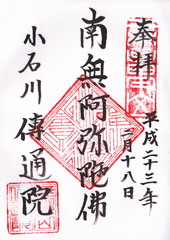 奉拝
平成二十三年
二月十八日
南無阿弥陀佛
小石川傳通院